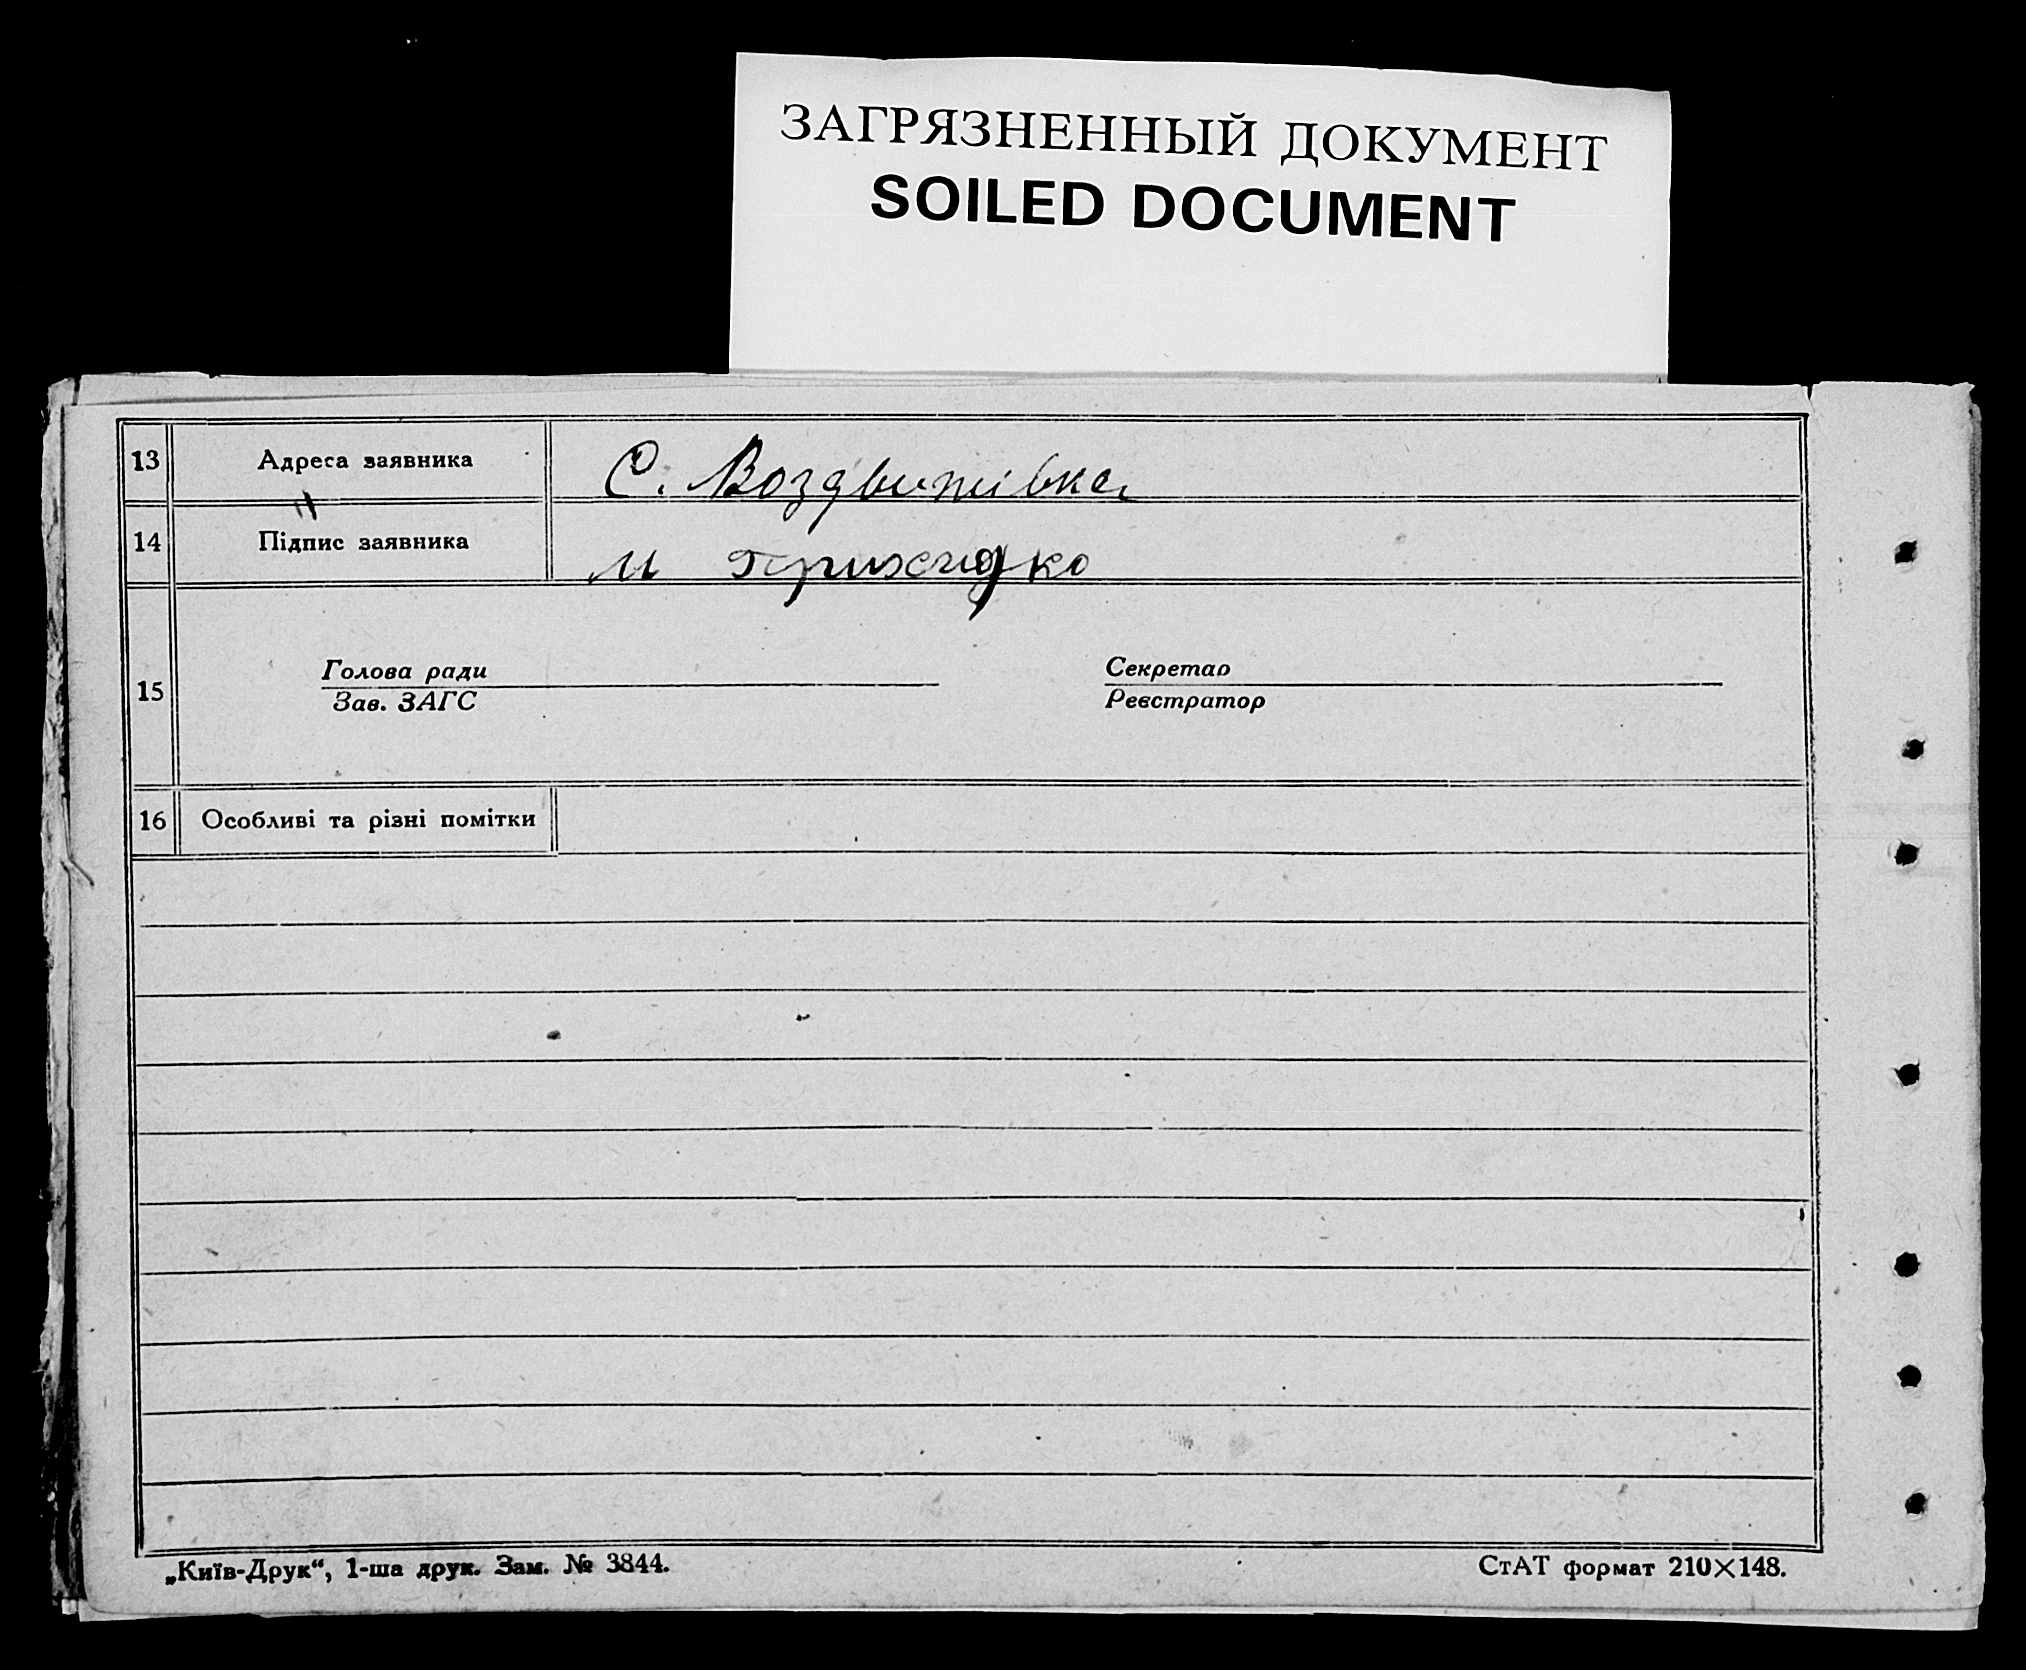 ЗАГРЯЗНЕННЫЙ ДОКУМЕНТ
SOILED DOCUMENT
13 Адреса заявника С. Воздвижівка
14 Підпис заявника М Приходко
15 Голова ради Секретар
Зав. ЗАГС Реєстратор
16 Особливі та різні помітки
„Київ-Друк“, 1-ша друк. Зам. № 3844. СтАТ формат 210×148.